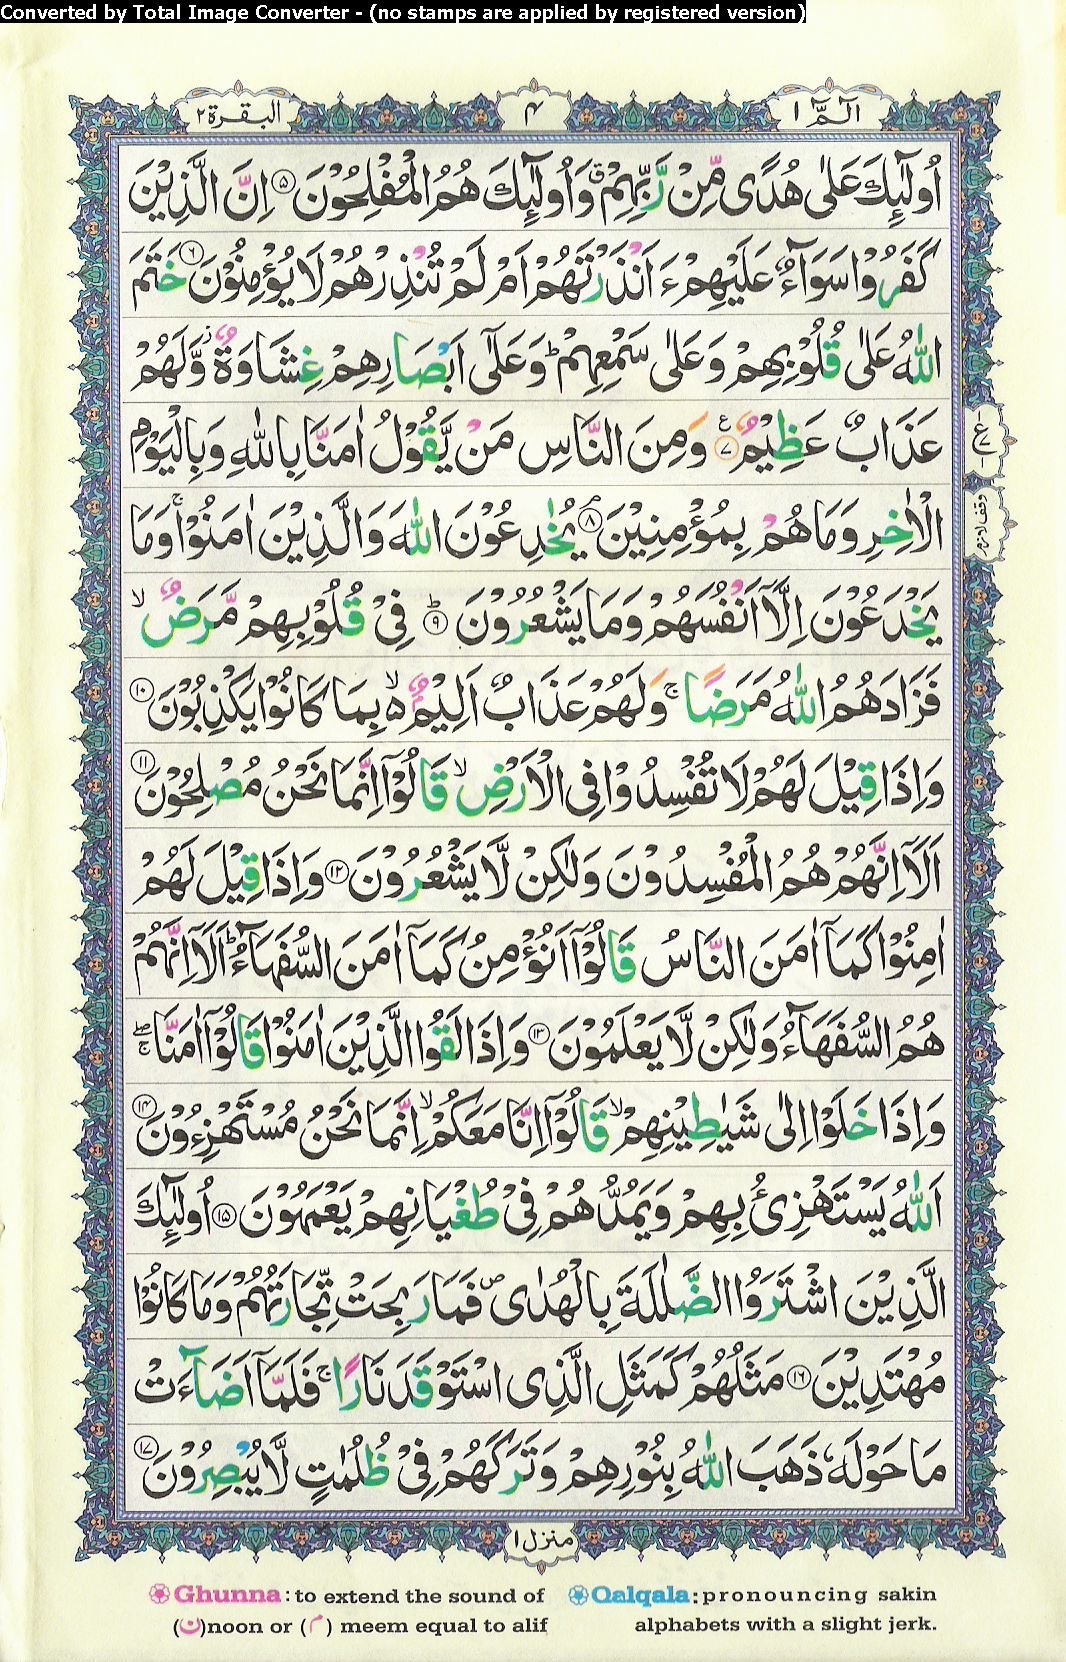 Converted by Total Image Converter - (no stamps are applied by registered version)
البقرة ٢ ۴ الٓمّٓ ١
اُولٰٓئِكَ عَلٰى هُدًى مِّنْ رَّبِّهِمْ ۗ وَاُولٰٓئِكَ هُمُ الْمُفْلِحُوْنَ ۵ اِنَّ الَّذِيْنَ
كَفَرُوْا سَوَآءٌ عَلَيْهِمْ ءَاَنْذَرْتَهُمْ اَمْ لَمْ تُنْذِرْهُمْ لَا يُؤْمِنُوْنَ ۶ خَتَمَ
اللّٰهُ عَلٰى قُلُوْبِهِمْ وَعَلٰى سَمْعِهِمْ ؕ وَعَلٰٓى اَبْصَارِهِمْ غِشَاوَةٌ ز وَّلَهُمْ
عَذَابٌ عَظِيْمٌ ۷ ع وَمِنَ النَّاسِ مَنْ يَّقُوْلُ اٰمَنَّا بِاللّٰهِ وَبِالْيَوْمِ
الْاٰخِرِ وَمَا هُمْ بِمُؤْمِنِيْنَ ۘ ۸ يُخٰدِعُوْنَ اللّٰهَ وَالَّذِيْنَ اٰمَنُوْا ۚ وَمَا
يَخْدَعُوْنَ اِلَّآ اَنْفُسَهُمْ وَمَا يَشْعُرُوْنَ ؕ ۹ فِيْ قُلُوْبِهِمْ مَّرَضٌ ۙ
فَزَادَهُمُ اللّٰهُ مَرَضًا ۚ وَلَهُمْ عَذَابٌ اَلِيْمٌ ۵ ۙ بِمَا كَانُوْا يَكْذِبُوْنَ ۱۰
وَاِذَا قِيْلَ لَهُمْ لَا تُفْسِدُوْا فِى الْاَرْضِ ۙ قَالُوْٓا اِنَّمَا نَحْنُ مُصْلِحُوْنَ ۱۱
اَلَآ اِنَّهُمْ هُمُ الْمُفْسِدُوْنَ وَلٰكِنْ لَّا يَشْعُرُوْنَ ۱۲ وَاِذَا قِيْلَ لَهُمْ
اٰمِنُوْا كَمَآ اٰمَنَ النَّاسُ قَالُوْٓا اَنُؤْمِنُ كَمَآ اٰمَنَ السُّفَهَآءُ ؕ اَلَآ اِنَّهُمْ
هُمُ السُّفَهَآءُ وَلٰكِنْ لَّا يَعْلَمُوْنَ ۱۳ وَاِذَا لَقُوا الَّذِيْنَ اٰمَنُوْا قَالُوْٓا اٰمَنَّا ۖۚ
وَاِذَا خَلَوْا اِلٰى شَيٰطِيْنِهِمْ ۙ قَالُوْٓا اِنَّا مَعَكُمْ ۙ اِنَّمَا نَحْنُ مُسْتَهْزِءُوْنَ ۱۴
اَللّٰهُ يَسْتَهْزِئُ بِهِمْ وَيَمُدُّهُمْ فِيْ طُغْيَانِهِمْ يَعْمَهُوْنَ ۱۵ اُولٰٓئِكَ
الَّذِيْنَ اشْتَرَوُا الضَّلٰلَةَ بِالْهُدٰى ۖ فَمَا رَبِحَتْ تِّجَارَتُهُمْ وَمَا كَانُوْا
مُهْتَدِيْنَ ۱۶ مَثَلُهُمْ كَمَثَلِ الَّذِى اسْتَوْقَدَ نَارًا ۚ فَلَمَّآ اَضَآءَتْ
مَا حَوْلَهٗ ذَهَبَ اللّٰهُ بِنُوْرِهِمْ وَتَرَكَهُمْ فِيْ ظُلُمٰتٍ لَّا يُبْصِرُوْنَ ۱۷
ع
وقف لازم
منزل ١
Ghunna: to extend the sound of
(ن)noon or (م) meem equal to alif
Qalqala: pronouncing sakin
alphabets with a slight jerk.